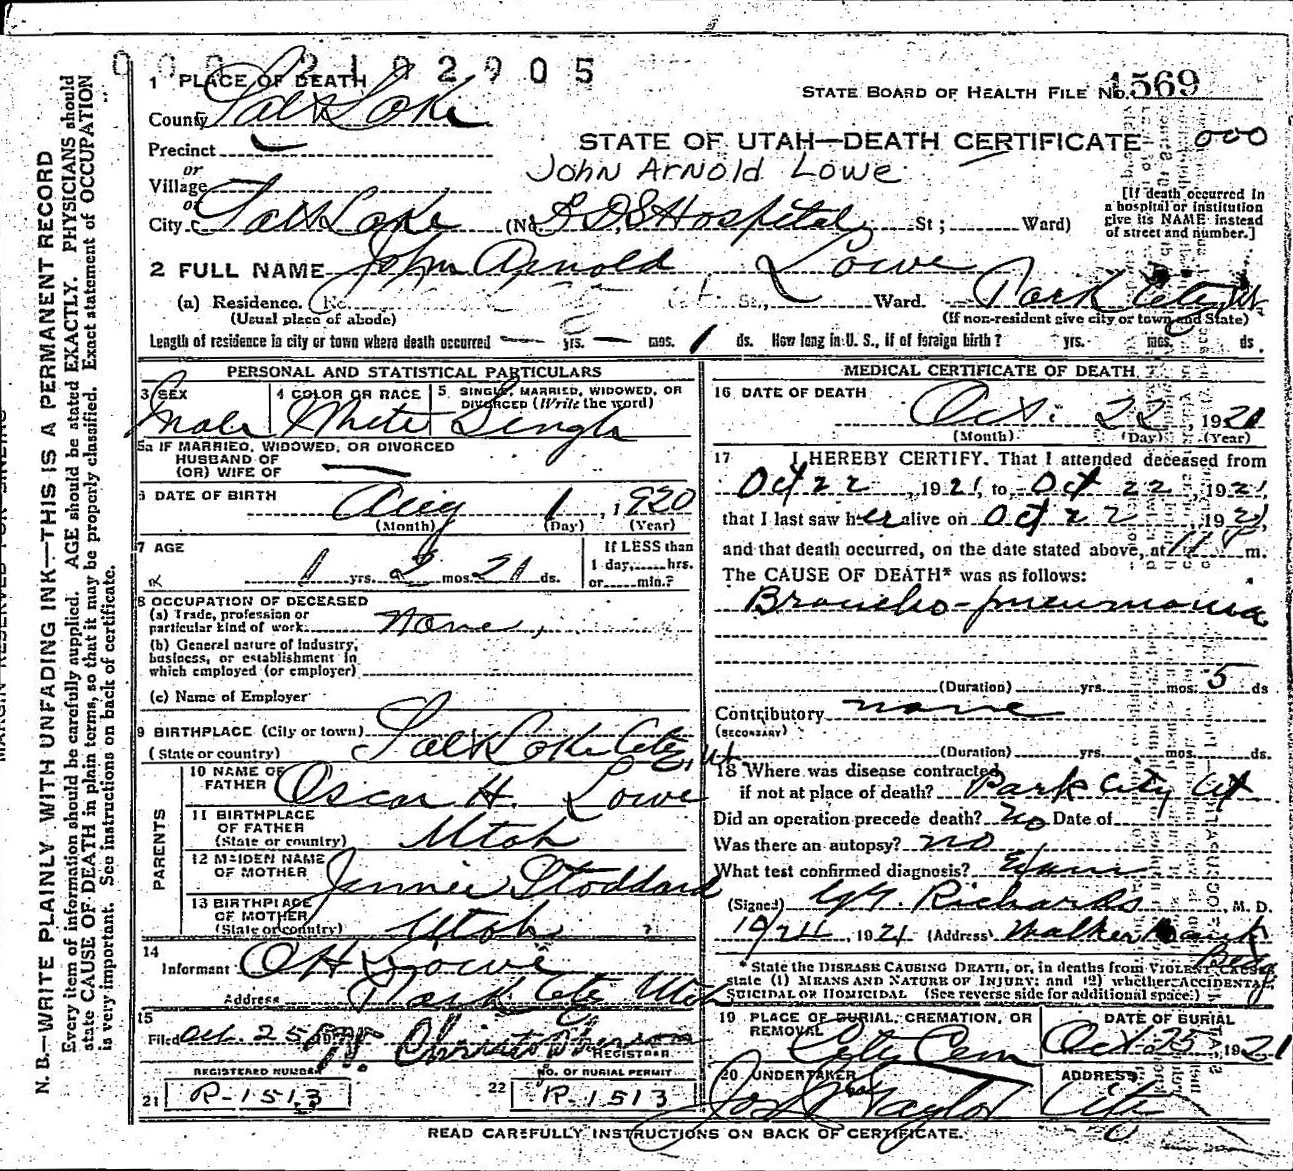 0 0 0 2 1 0 2 9 0 5
1 PLACE OF DEATH
STATE BOARD OF HEALTH FILE No. 1569
County Salt Lake
STATE OF UTAH—DEATH CERTIFICATE 000
Precinct
or
John Arnold Lowe
Village
or
[If death occurred in a hospital or institution give its NAME instead of street and number.]
City Salt Lake (No. L D S Hospital St; Ward)
2 FULL NAME John Arnold Lowe
(a) Residence. No. St., Ward. Park City Ut
(Usual place of abode) (If non-resident give city or town and State)
Length of residence in city or town where death occurred — yrs. — mos. 1 ds. How long in U. S., if of foreign birth? yrs. mos. ds.
PERSONAL AND STATISTICAL PARTICULARS
3 SEX Male
4 COLOR OR RACE White
5 SINGLE, MARRIED, WIDOWED, OR DIVORCED (Write the word) Single
5a IF MARRIED, WIDOWED, OR DIVORCED
HUSBAND OF
(OR) WIFE OF —
6 DATE OF BIRTH Aug 1, 1920
(Month) (Day) (Year)
7 AGE 1 yrs. 2 mos. 21 ds.
If LESS than
1 day,......hrs.
or......min.?
8 OCCUPATION OF DECEASED
(a) Trade, profession or
particular kind of work None,
(b) General nature of Industry,
business, or establishment in
which employed (or employer)
(c) Name of Employer
9 BIRTHPLACE (City or town) Salt Lake City, Ut
(State or country)
PARENTS
10 NAME OF FATHER Oscar H. Lowe
11 BIRTHPLACE OF FATHER (State or country) Utah
12 MAIDEN NAME OF MOTHER Jennie Stoddard
13 BIRTHPLACE OF MOTHER (State or country) Utah
14
Informant O H Lowe
Address Park City Utah
15
Filed Oct. 25, 19 REGISTRAR
REGISTERED NUMBER
21 R-1513
NO. OF BURIAL PERMIT
22 R-1513
MEDICAL CERTIFICATE OF DEATH
16 DATE OF DEATH
Oct. 22, 1921
(Month) (Day) (Year)
17 I HEREBY CERTIFY. That I attended deceased from
Oct 22, 1921, to Oct 22, 1921,
that I last saw her alive on Oct 22, 1921,
and that death occurred, on the date stated above, at m.
The CAUSE OF DEATH* was as follows:
Broncho-pneumonia
(Duration) yrs. mos. 5 ds
Contributory none
(SECONDARY)
(Duration) yrs. mos. ds.
18 Where was disease contracted
if not at place of death? Park City Ut
Did an operation precede death? No Date of
Was there an autopsy? no
What test confirmed diagnosis? Exam
(Signed) Richards, M. D.
10/24, 1921 (Address) Walker Bank Bldg
* State the DISEASE CAUSING DEATH, or, in deaths from VIOLENT CAUSES
state (1) MEANS AND NATURE OF INJURY; and (2) whether ACCIDENTAL,
SUICIDAL OR HOMICIDAL (See reverse side for additional space.)
19 PLACE OF BURIAL, CREMATION, OR REMOVAL
City Cem
DATE OF BURIAL
Oct 25 1921
20 UNDERTAKER
Taylor
ADDRESS
City
READ CAREFULLY INSTRUCTIONS ON BACK OF CERTIFICATE.
MARGIN RESERVED FOR
N. B.—WRITE PLAINLY WITH UNFADING INK—THIS IS A PERMANENT RECORD
Every item of information should be carefully supplied. AGE should be stated EXACTLY. PHYSICIANS should
state CAUSE OF DEATH in plain terms, so that it may be properly classified. Exact statement of OCCUPATION
is very important. See instructions on back of certificate.